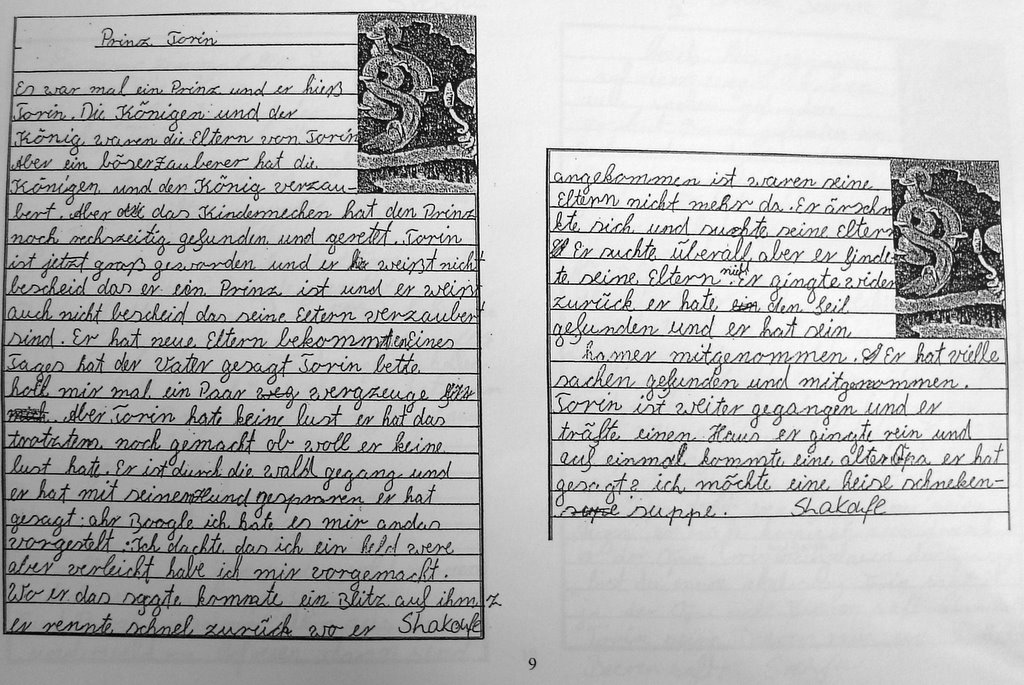 Prinz Torin
Es war mal ein Prinz und er hieß
Torin. Die Königen und der
König waren die Eltern von Torin
Aber ein böser Zauberer hat die
Königen und den König verzau-
bert. Aber das Kindermechen hat den Prinz
noch rechszeitig gefunden und geretet. Torin
ist jetzt groß geworden und er weißt nicht
bescheid das er ein Prinz ist und er weist
auch nicht bescheid das seine Eltern verzaubert
sind. Er hat neue Eltern bekommen Eines
Tages hat der Vater gesagt Torin bette
holl mir mal ein Paar wergzeuge
Aber Torin hate keine lust er hat das
trotztem noch gemacht ob woll er keine
lust hate. Er ist durch die wald gegang und
er hat mit seinen Hund gesproren er hat
gesagt: ahr Boogle ich hate es mir anders
vorgestelt. Ich dachte das ich ein held were
aber verleicht habe ich mir vorgemacht.
Wo er das sagte kommte ein Blitz auf ihm
er rennte schnel zurück wo er Shakoufe
angekommen ist waren seine
Eltern nicht mehr da. Er ärschr
kte sich und suchte seine Eltern
Er suchte überall aber er finde-
te seine Eltern nicht. Er gingte wider
zurück er hate den Seil
gefunden und er hat sein
hamer mitgenommen. Er hat vielle
sachen gefunden und mitgenommen.
Torin ist weiter gegangen und er
träfte einen Haus er gingte rein und
auf einmal kommte eine alter Opa er hat
gesagt? ich möchte eine heise schneken-
suppe. Shakoufe
9